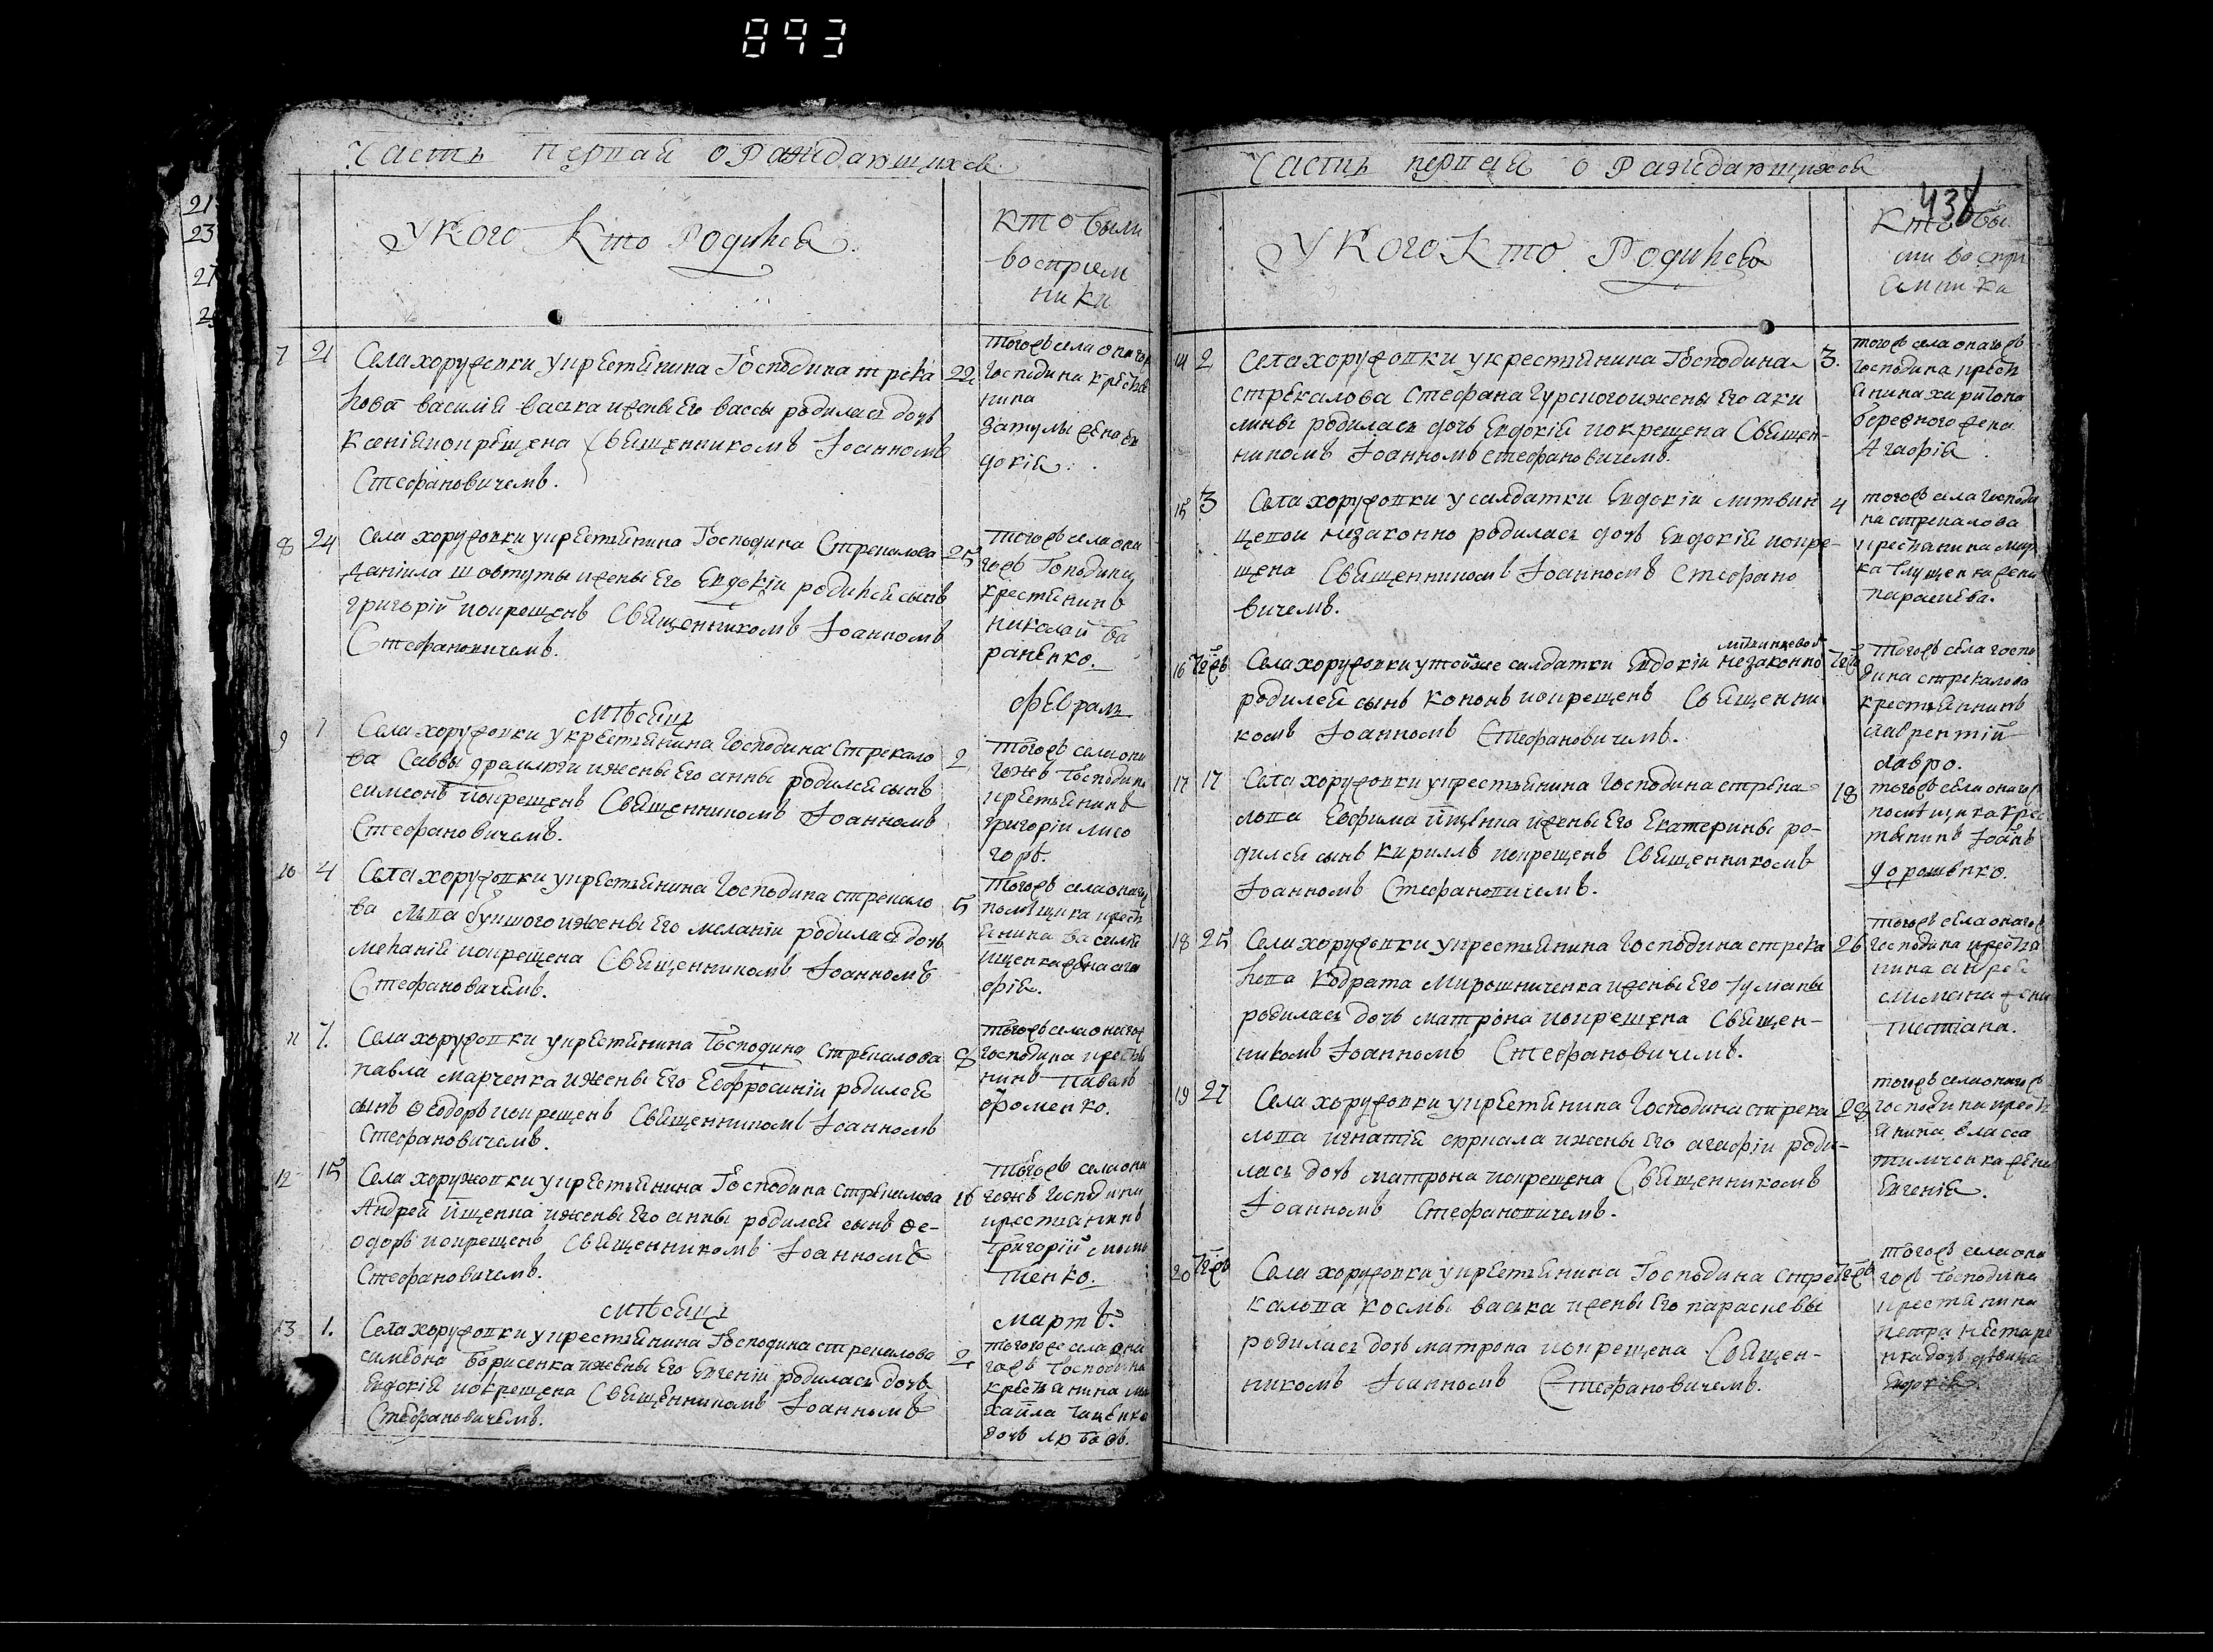 893
Часть первая о раждающихся
У кого кто родился
кто были
восприем
ники
7 21 Села хоружовки у крестянина Господина стрека
лова василия васка и жены Его вассы родилась дочь
Ксенія и окрещена Священникомъ Іоанномъ
Стефановичемъ.
22
тогожъ села онаго
Господина крестя
нина
жена Ев
докія.
8 24 Села хоружовки у крестянина Господина Стрекалова
Даніила шовтуты и жены Его Евдокіи родился сынъ
григорій и окрещенъ Священникомъ Іоанномъ
Стефановичемъ.
25
тогожъ села она
гожъ Господина
крестянинъ
николай ба
раненко.
мѣсяцъ
февраль
9 1 Села хоружовки у крестянина Господина Стрекало
ва Саввы драмлюги и жены Его анны родился сынъ
симеонъ и окрещенъ Священникомъ Іоанномъ
Стефановичемъ.
2
тогожъ села она
гожъ Господина
крестянинъ
григорій лисо
горъ.
10 4 Села хоружовки у крестянина Господина стрекало
ва и жены Его меланіи родилась дочь
меланія и окрещена Священникомъ Іоанномъ
Стефановичемъ.
5
тогожъ села онаго
помѣщика крест
янина василія
ищенка жена ага
фія.
11 7. Села хоружовки у крестянина Господина Стрекалова
павла марченка и жены Его Евфросиніи родился
сынъ Ѳеодоръ и окрещенъ Священникомъ Іоанномъ
Стефановичемъ.
8
тогожъ села онагож
Господина крестя
нинъ павелъ
фоменко.
12 15 Села хоружовки у крестянина Господина Стрекалова
Андрея Ищенка и жены Его анны родился сынъ Ѳе-
одоръ и окрещенъ Священникомъ Іоанномъ
Стефановичемъ.
16
тогожъ села она
гожъ Господина
крестянинъ
Григорій
тенко.
мѣсяцъ
мартъ.
13 1. Села хоружовки у крестянина Господина стрекалова
симеона борисенка и жены Его Евгеніи родилась дочь
Евдокія и окрещена Священникомъ Іоанномъ
Стефановичемъ.
2
тогожъ села она
гожъ Господина
крестянина ми
хайла гаценка
дочь любовь.
Часть первая о раждающихся
438
У кого кто родился
Кто бы
ли воспри
емники
14 2 Села хоружовки у крестянина Господина
стрекалова Стефана гурского и жены Его аки
лины родилась дочь Евдокія и окрещена Священ-
никомъ Іоанномъ Стефановичемъ.
3.
тогожъ села онагожъ
Господина крест
янина харитона
бережного жена
Агафія
15 3 Села хоружовки у салдатки Евдокіи литвин
цевой незаконно родилась дочь Евдокія и окре-
щена Священникомъ Іоанномъ Стефано
вичемъ.
4
тогожъ села Господи
на стрекалова
крестянина мар
ка глущенка жена
параскева.
16 тогожъ Села хоружовки у тойже салдатки Евдокіи литвинцевой незаконно
родился сынъ Кононъ и окрещенъ Священни
комъ Іоанномъ Стефановичемъ.
Тогожъ села госпо
дина стрекалова
крестянинъ
лаврентій
лавро.
17 17 Села хоружовки у крестянина Господина стрека
лова Евфима ищенка и жены Его Екатерины ро-
дился сынъ Кириллъ и окрещенъ Священникомъ
Іоанномъ Стефановичемъ.
18
тогожъ села онагож
помѣщика крес
тянинъ Іоанъ
дорошенко.
18 25 Села хоружовки у крестянина Господина стрека
лова Кодрата Мирошниченка и жены Его
родилась дочь матрона и окрещена Священ-
никомъ Іоанномъ Стефановичемъ.
26
тогожъ села онагож
господина крестя
нина андрея
жена
тистіана.
19 27 Села хоружовки у крестянина Господина стрека
лова игнатія и жены Его агафіи роди-
лась дочь матрона и окрещена Священникомъ
Іоанномъ Стефановичемъ.
28
тогожъ села онагож
господина крест
янина власа
тимченка жена
Евгенія.
20 Села хоружовки у крестянина Господина Стре
калова космы васка и жены Его параскевы
родилась дочь матрона и окрещена Священ-
никомъ Іоанномъ Стефановичемъ.
тогожъ села она
гожъ господина
крестянина
петра нестаре
нка дочь девица
Евдокія.